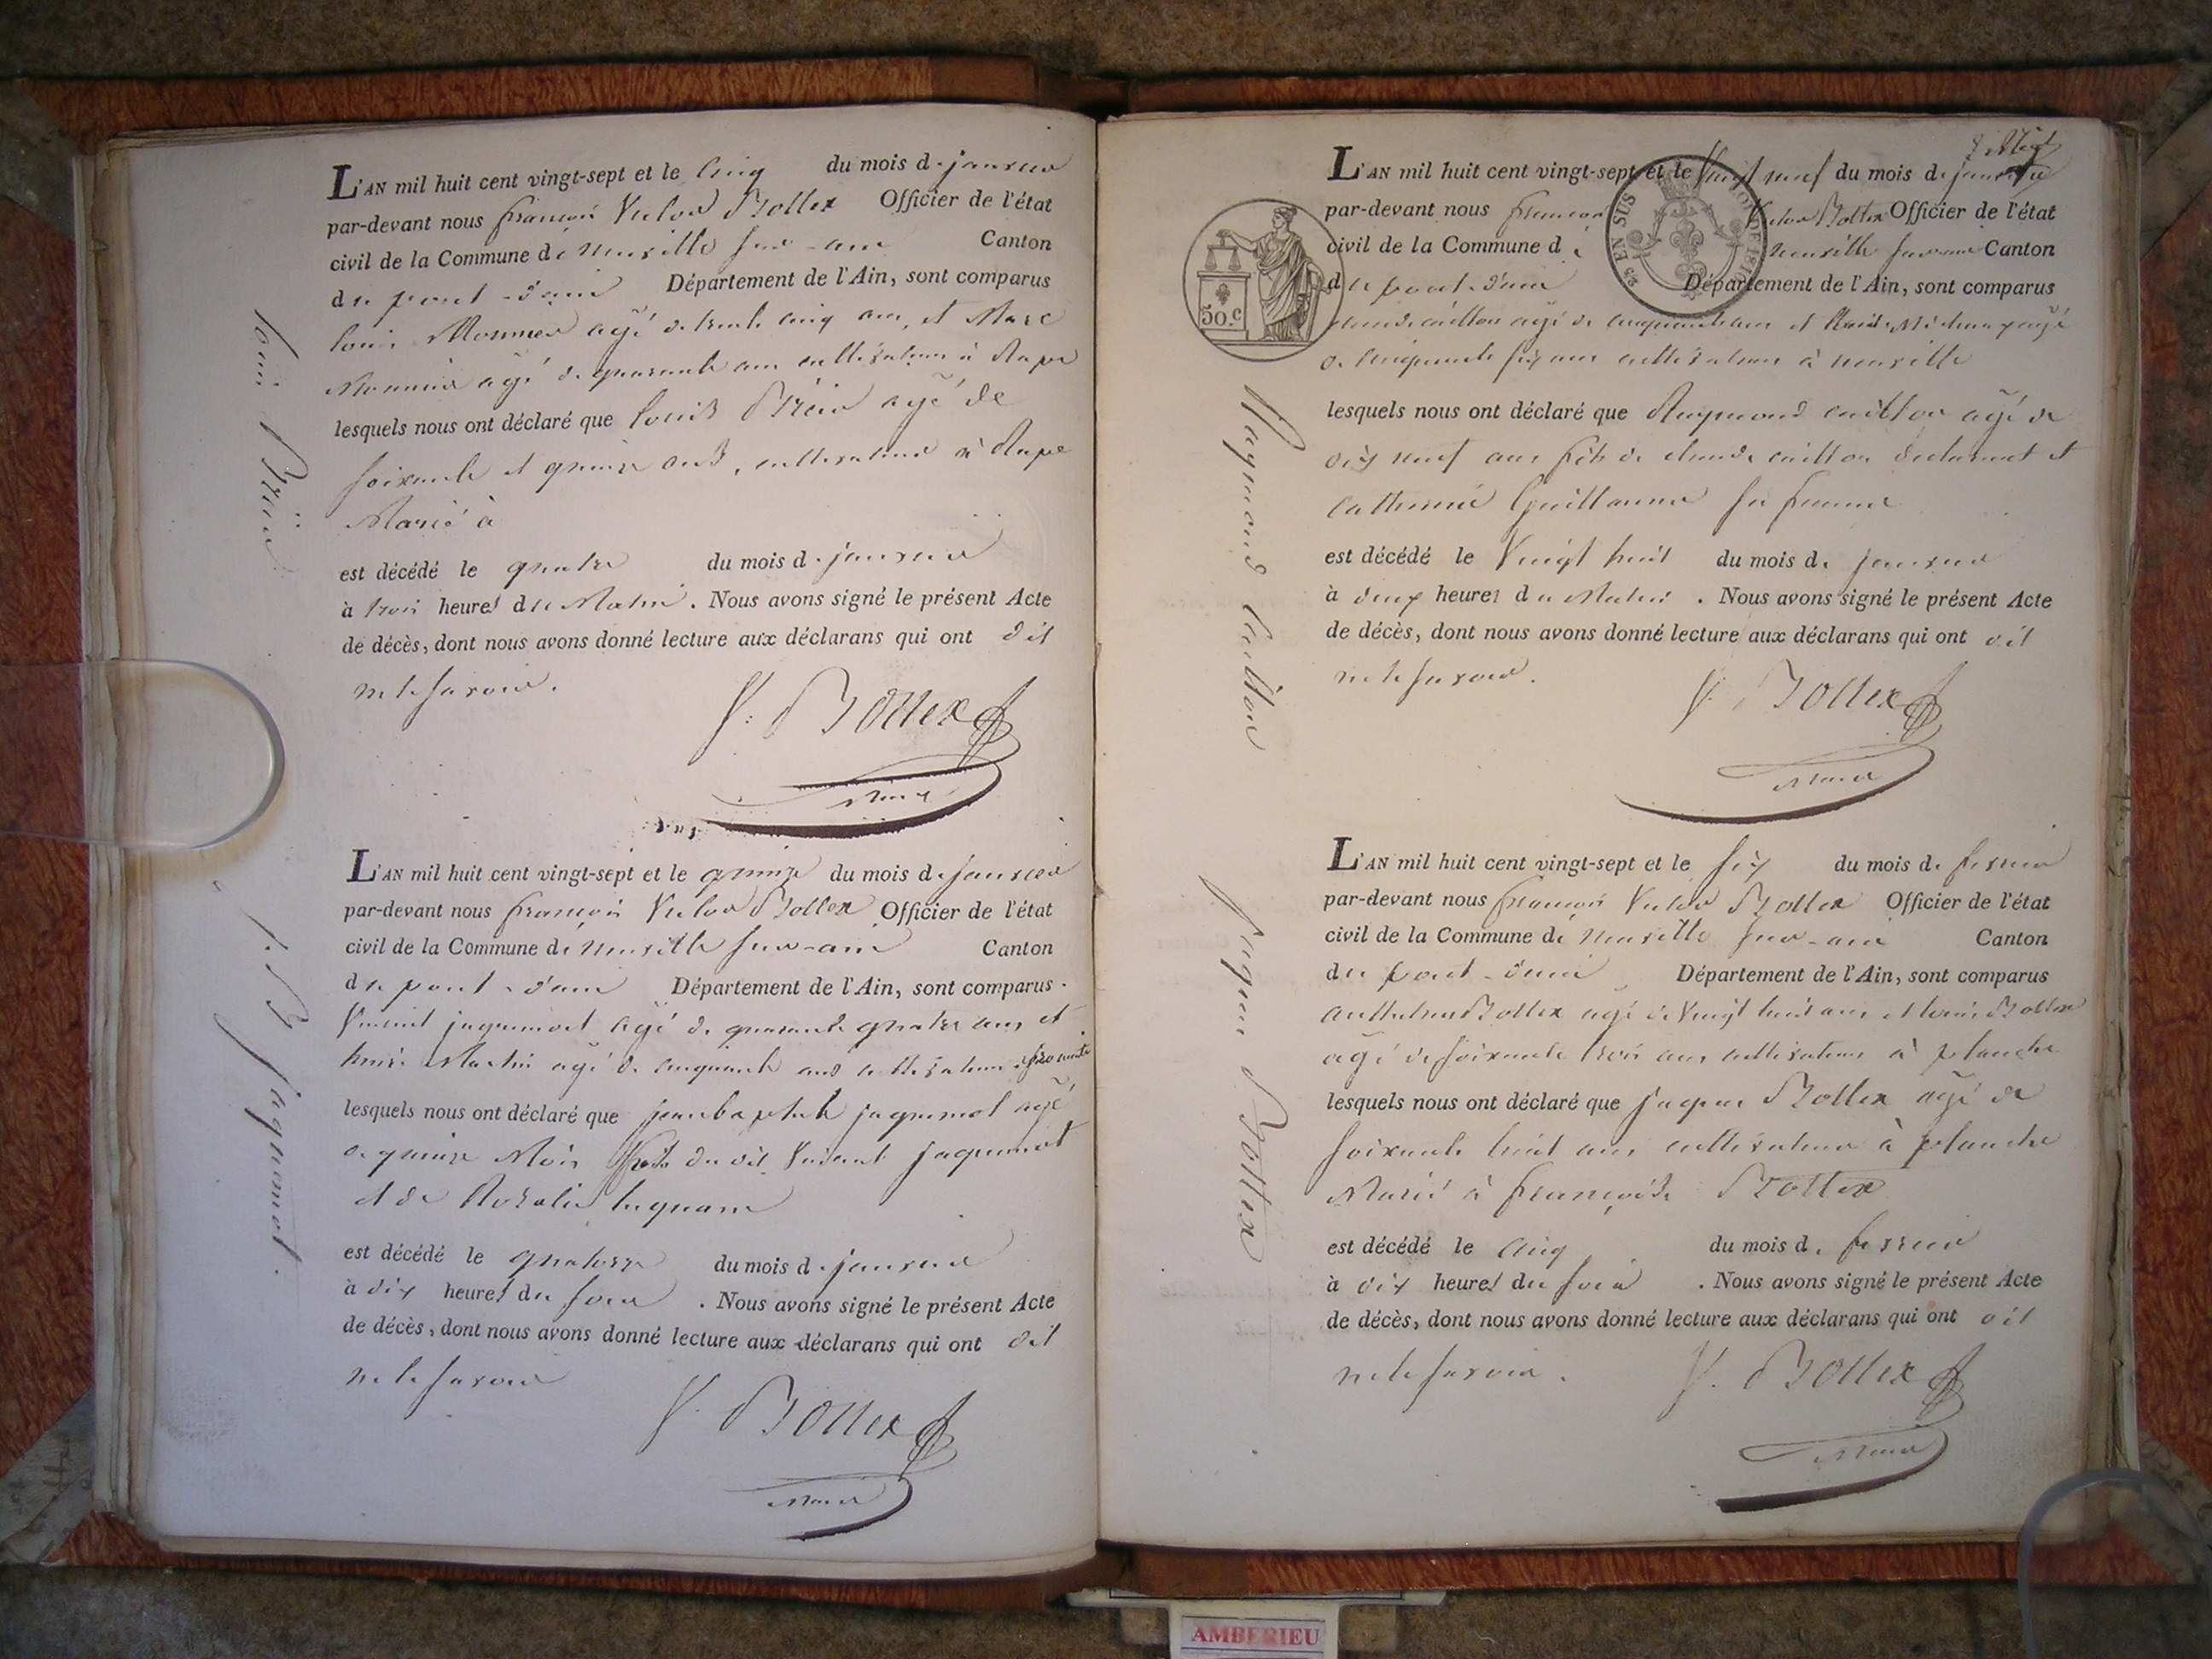 L'AN mil huit cent vingt-sept et le Cinq du mois de janvier
par-devant nous françois Victor Bottex Officier de l'état
civil de la Commune de neuville sur-ain Canton
du pont-d'ain Département de l'Ain, sont comparus
louis Monnier agé de trente cinq ans, et Marc
Monnier agé de quarante ans cultivateurs à Rape
lesquels nous ont déclaré que louis agé de
soixante et quinze ans, cultivateur à Rape
Marié à
est décédé le quatre du mois de janvier
à trois heures du Matin. Nous avons signé le présent Acte
de décès, dont nous avons donné lecture aux déclarans qui ont dit
ne le savoir.
V. Bottex
Maire
louis
L'AN mil huit cent vingt-sept et le quinze du mois de janvier
par-devant nous françois Victor Bottex Officier de l'état
civil de la Commune de neuville sur-ain Canton
du pont-d'ain Département de l'Ain, sont comparus
Vincent jaquemot agé de quarante quatre ans et
Martin agé de cinquante ans cultivateurs
lesquels nous ont déclaré que jean baptiste jaquemot agé
de quinze Mois fils du dit Vincent jaquemot
et de Rosalie
est décédé le quatorze du mois de janvier
à dix heures du soir. Nous avons signé le présent Acte
de décès, dont nous avons donné lecture aux déclarans qui ont dit
ne le savoir
V. Bottex
Maire
J. B jaquemot.
L'AN mil huit cent vingt-sept et le Vingt neuf du mois de janvier
par-devant nous françois Victor Bottex Officier de l'état
civil de la Commune de neuville sur-ain Canton
du pont-d'ain Département de l'Ain, sont comparus
claude caillon agé de cinquante ans et agé
de cinquante six ans cultivateurs à neuville
lesquels nous ont déclaré que Raymond caillon agé de
dix neuf ans fils de claude caillon declarant et
catherine Guillaume sa femme
est décédé le Vingt huit du mois de janvier
à deux heures du Matin. Nous avons signé le présent Acte
de décès, dont nous avons donné lecture aux déclarans qui ont dit
ne le savoir.
V. Bottex
Maire
Raymond Caillon
50.c
EN SUS
DE 1816
L'AN mil huit cent vingt-sept et le six du mois de fevrier
par-devant nous françois Victor Bottex Officier de l'état
civil de la Commune de neuville sur-ain Canton
du pont-d'ain Département de l'Ain, sont comparus
anthelme Bottex agé de Vingt huit ans et louis Bottex
agé de soixante trois ans cultivateurs à planche
lesquels nous ont déclaré que jaques Bottex agé de
soixante huit ans cultivateur à planche
Marié à françoise Bottex
est décédé le Cinq du mois de fevrier
à dix heures du soir. Nous avons signé le présent Acte
de décès, dont nous avons donné lecture aux déclarans qui ont dit
ne le savoir.
V. Bottex
Maire
jaques Bottex
AMBERIEU